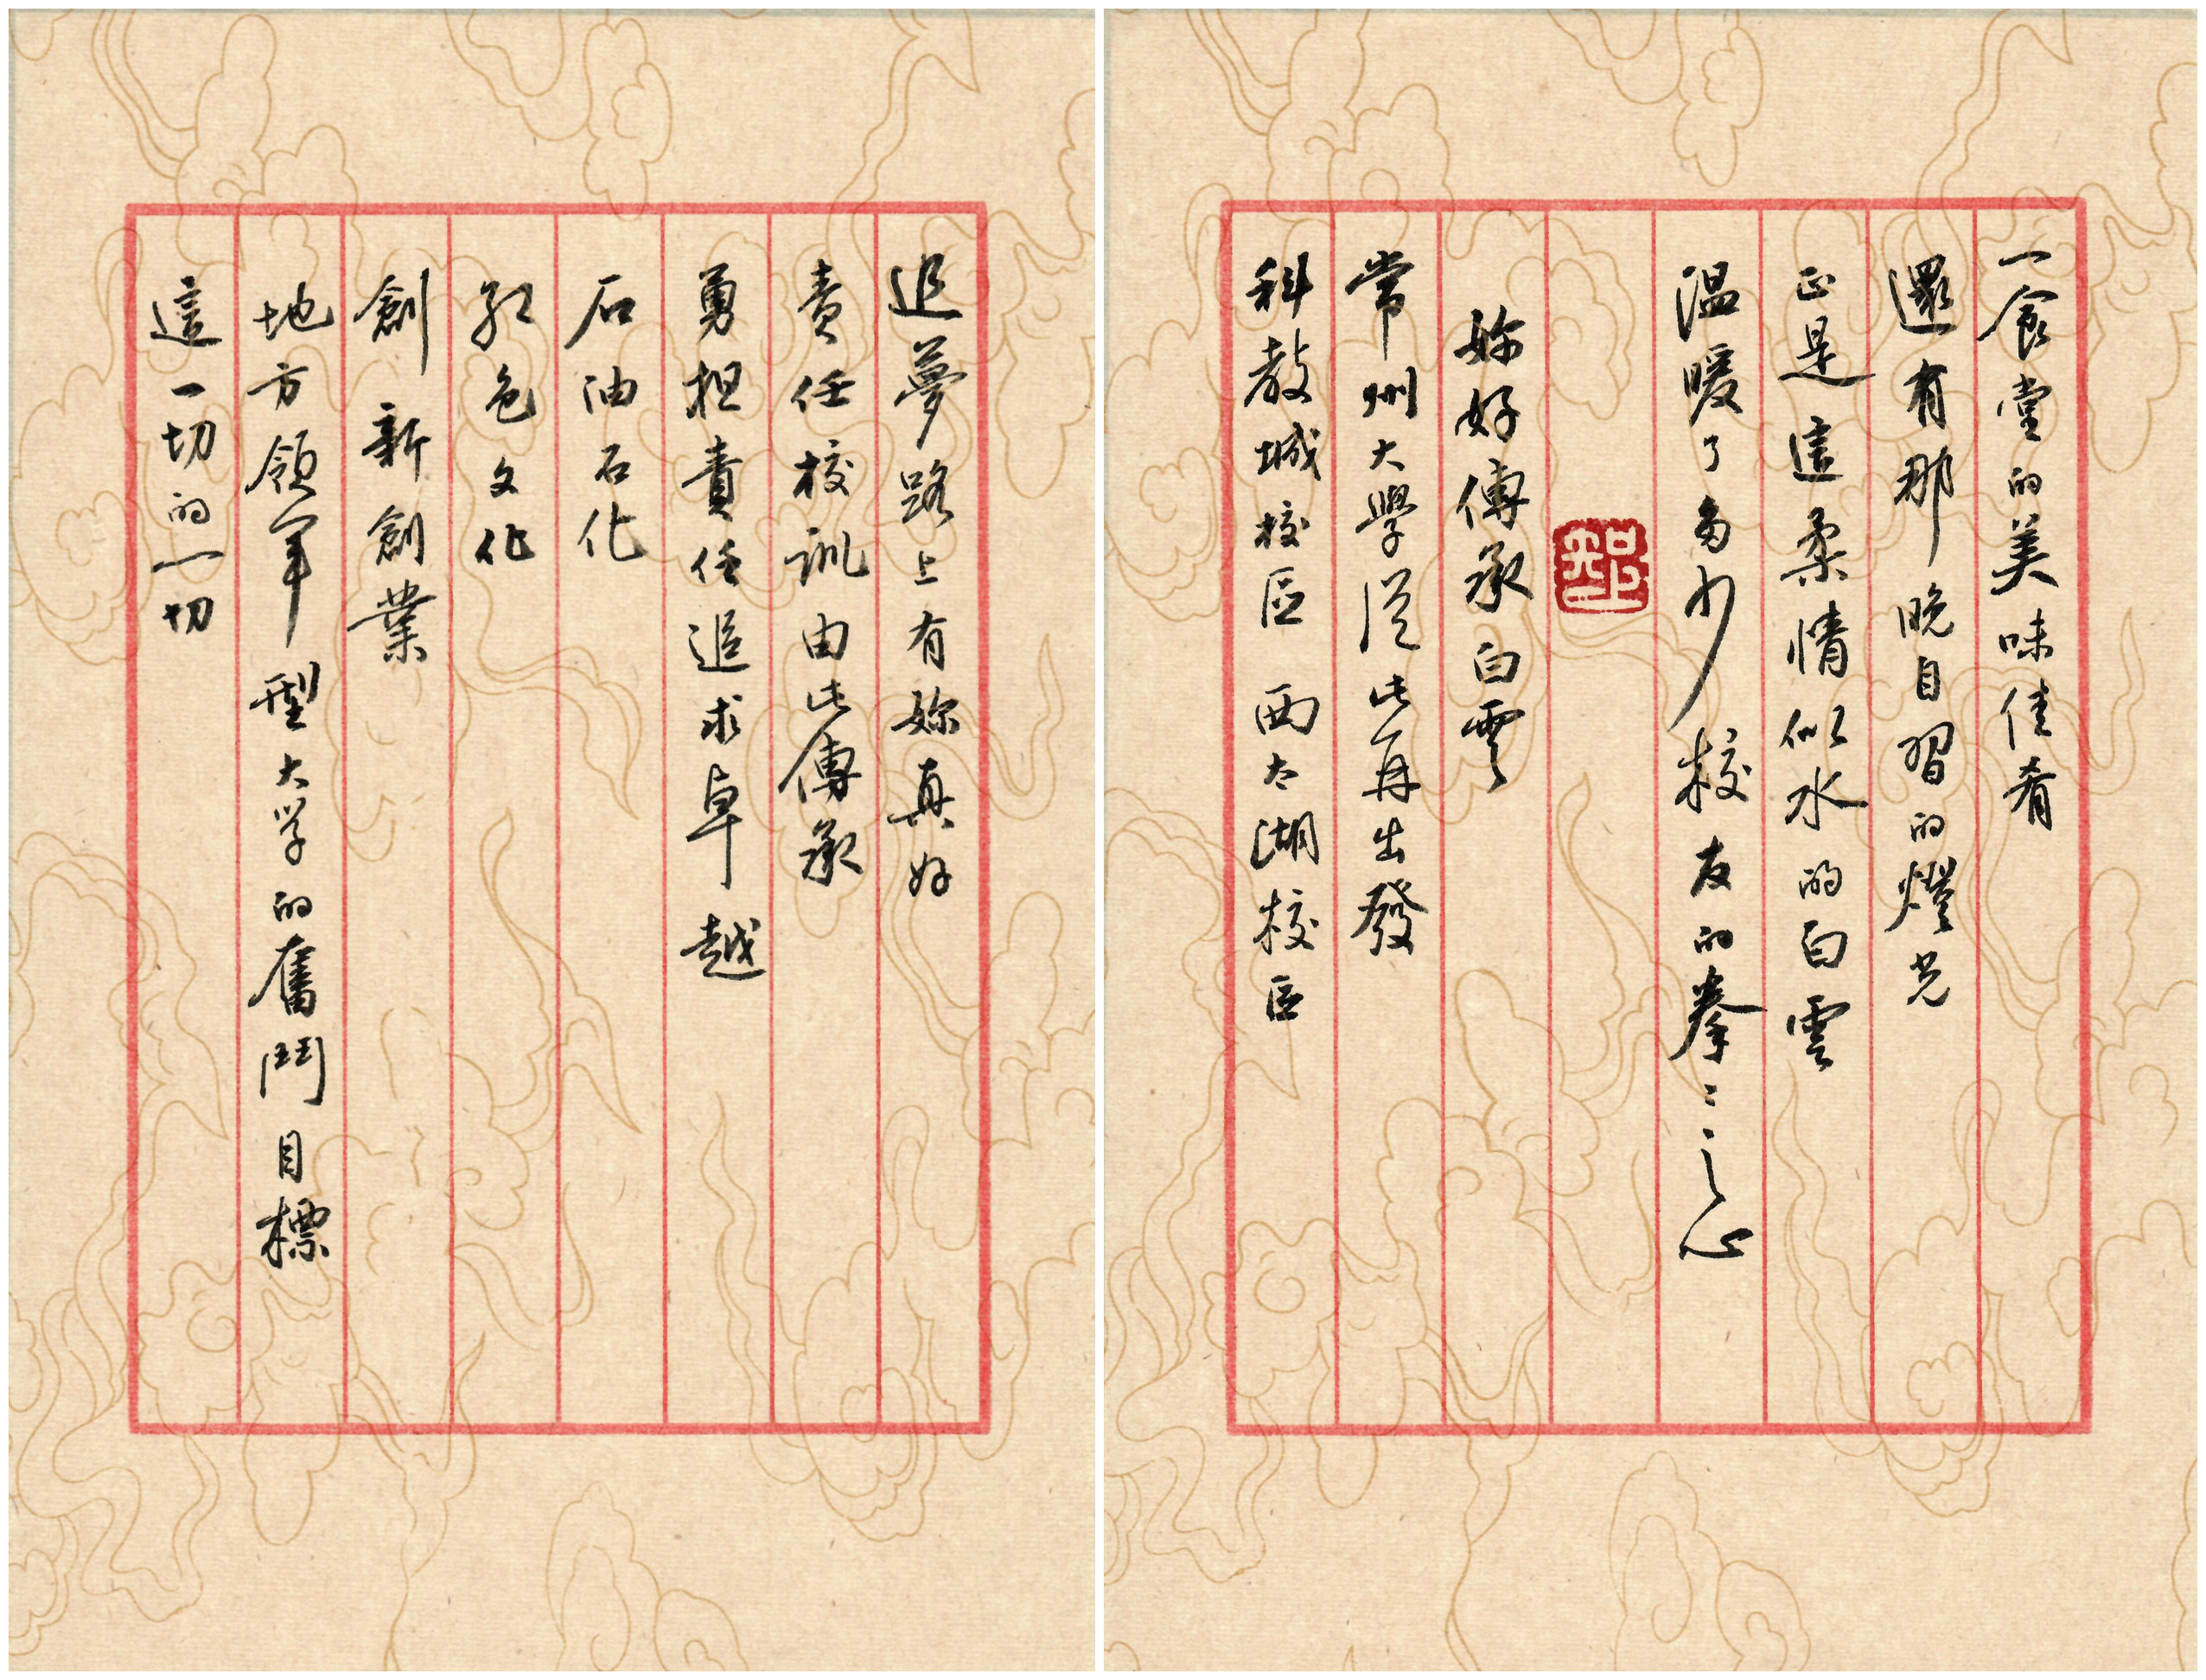 一食堂的美味佳肴
還有那晚自習的燈光
正是這柔情似水的白雲
温暖了多少校友的拳〻之心
妳好傳承白雲
常州大學從此再出發
科教城校區 西太湖校區
追夢路上有妳真好
責任校訓由此傳承
勇担責任追求卓越
石油石化
紅色文化
創新創業
地方領軍型大学的奮鬥目標
這一切的一切